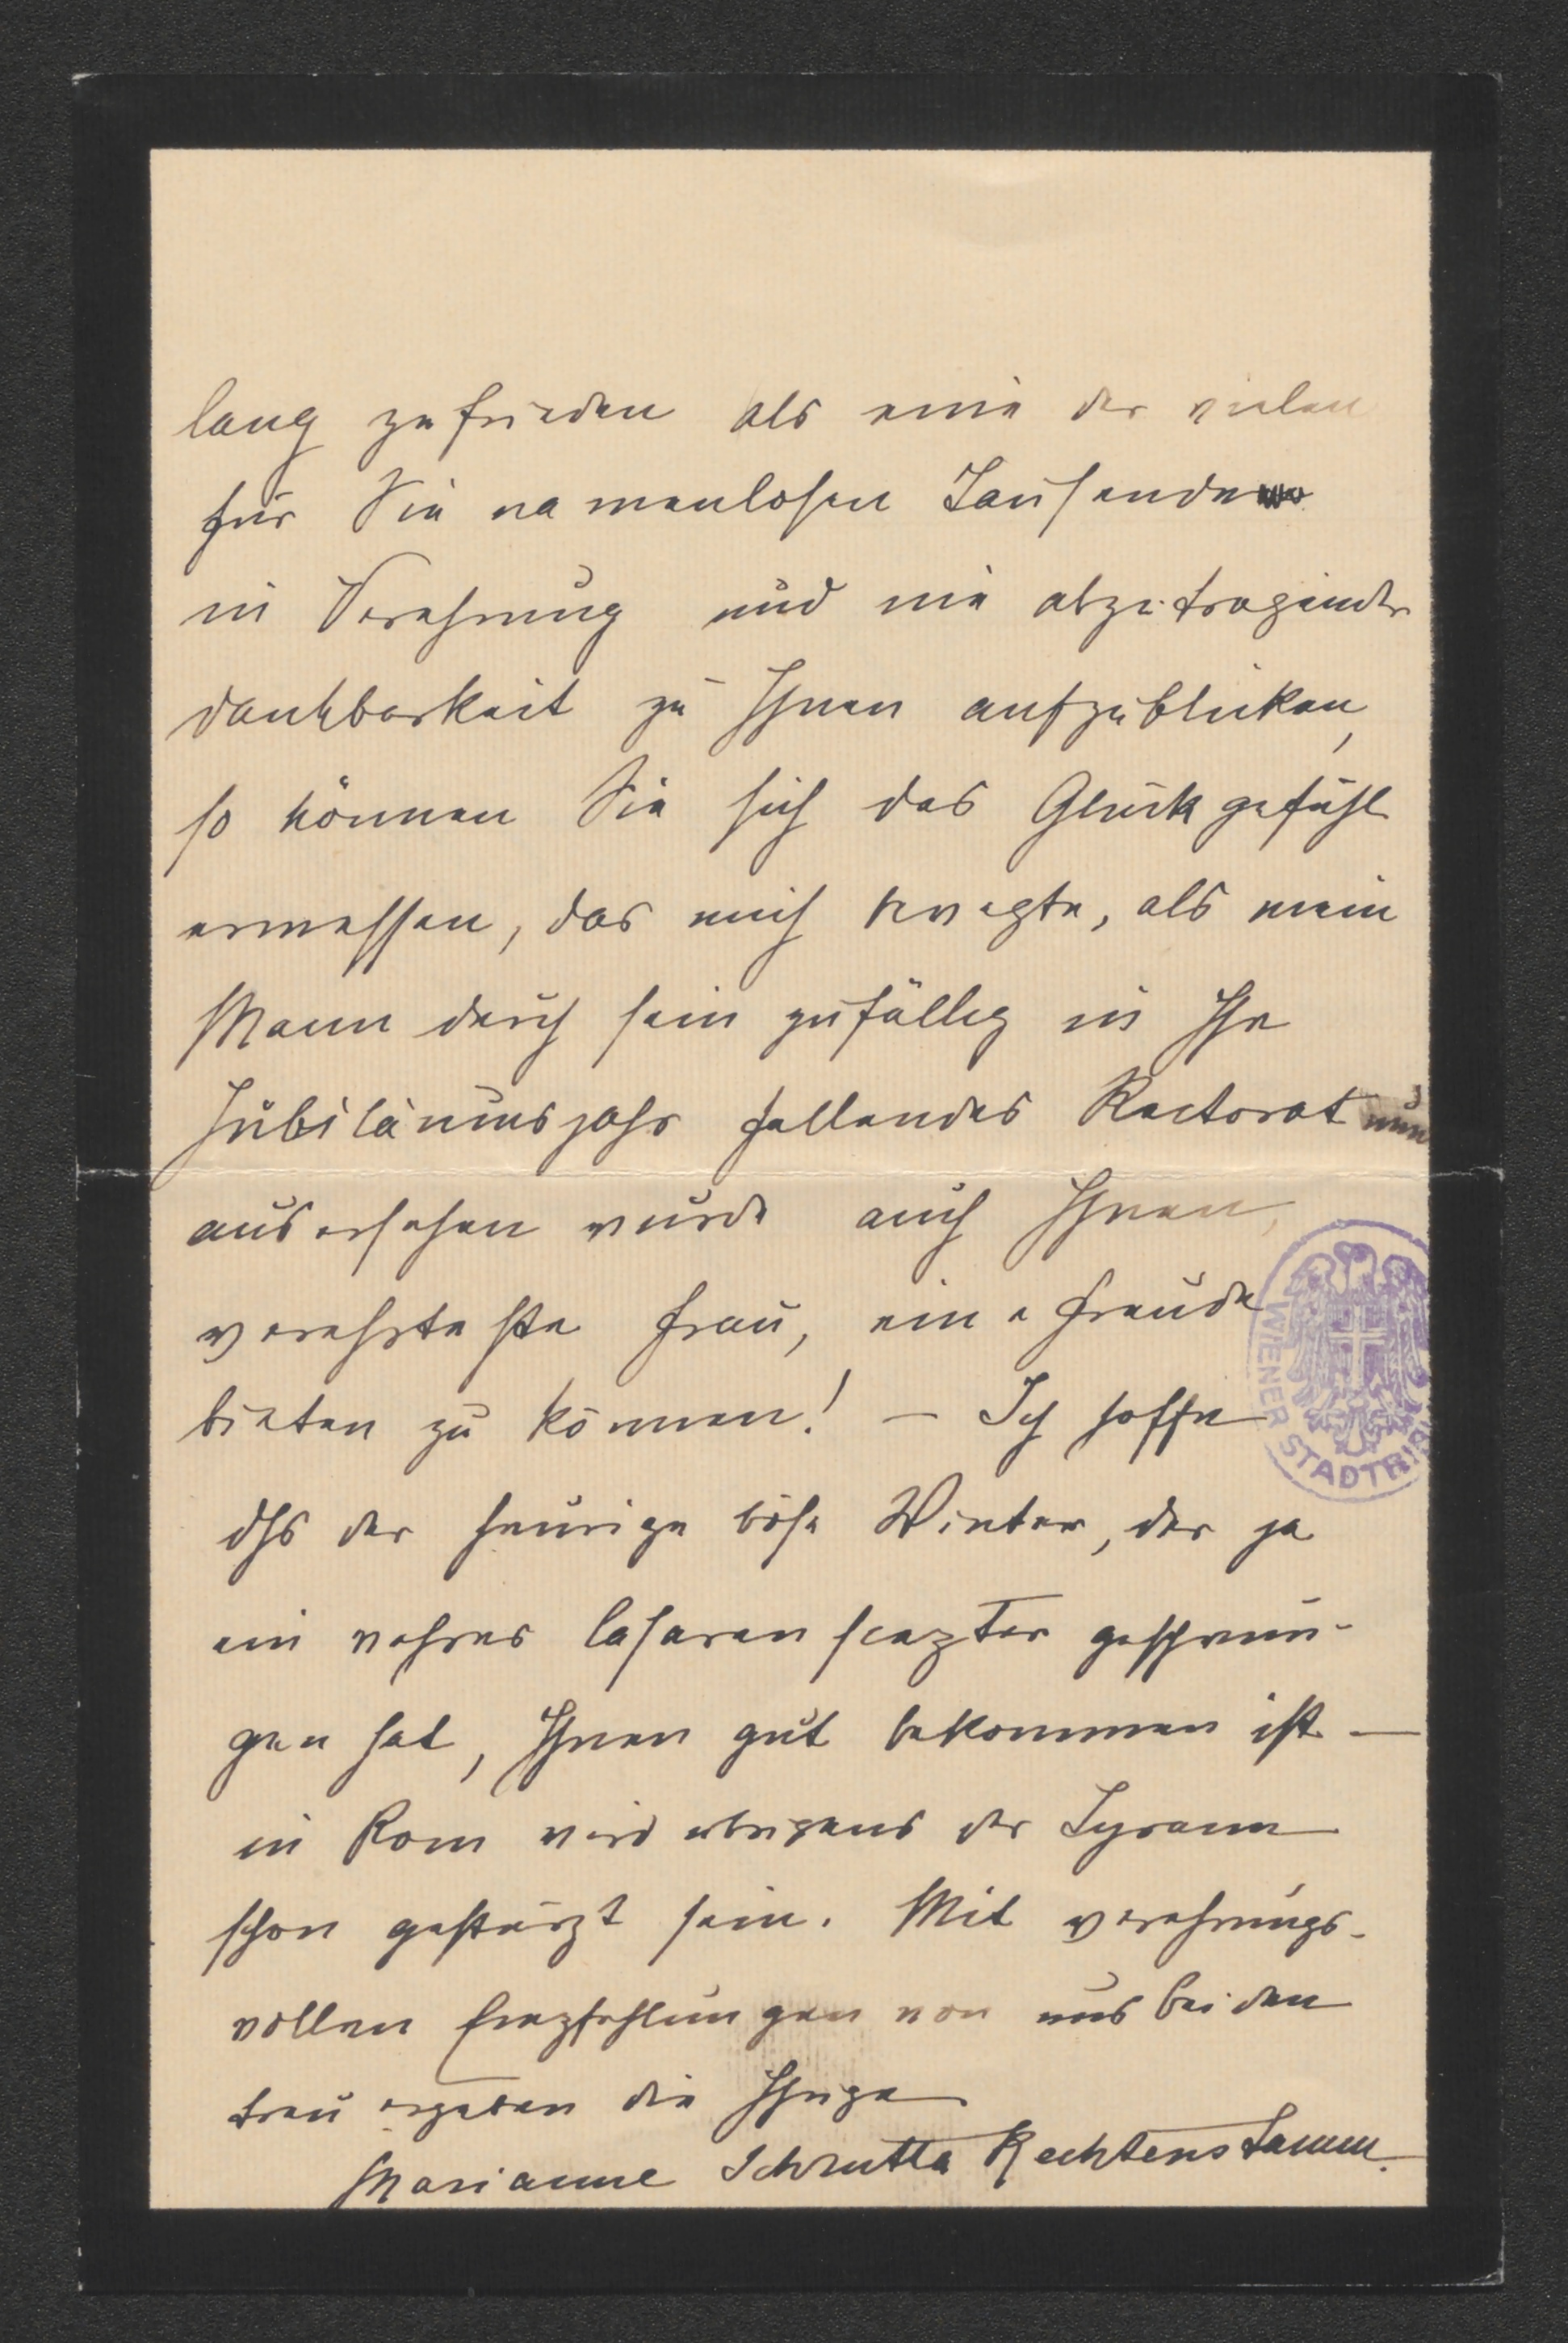 lang zufrieden als eine der vielen
für Sie namenlosen Tausende
in Verehrung und nie abzutragender
Dankbarkeit zu Ihnen aufzublicken,
so können Sie sich das Glückgefühl
ermessen, das mich bewegte, als mein
Mann durch sein zufällig in Ihr
Jubiläumsjahr fallendes Rectorat nun
ausersehen wurde auch Ihnen,
verehrteste Frau, eine Freude
bieten zu können! – Ich hoffe
dss der heurige böse Winter, der ja
ein wahres Cäsarenscepter geschwun-
gen hat, Ihnen gut bekommen ist –
in Rom wird übrigens der Tyrann
schon gestürzt sein. Mit verehrungs-
vollen Empfehlungen von uns beiden
treu ergeben die Ihrige
Marianne Schrutka Rechtenstamm.
WIENER STADTBI